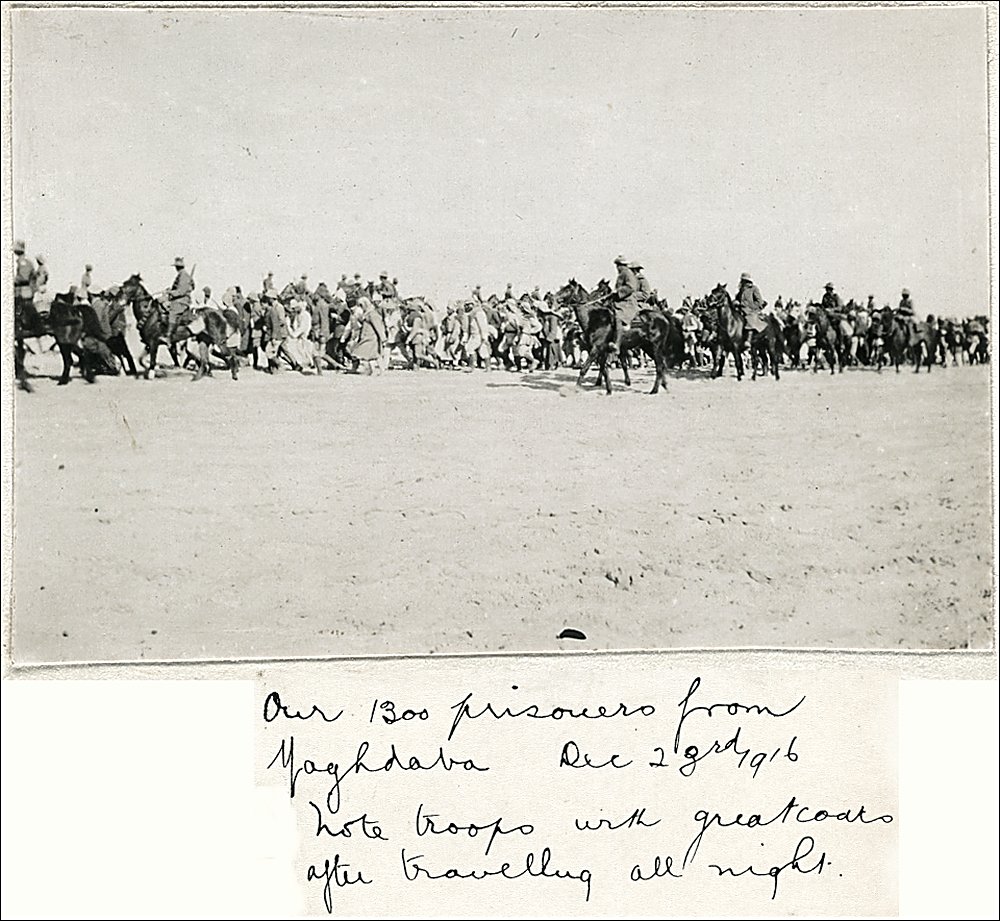 Our 1300 prisoners from
Maghdaba Dec 23rd 1916
Note troops with greatcoats
after travelling all night.